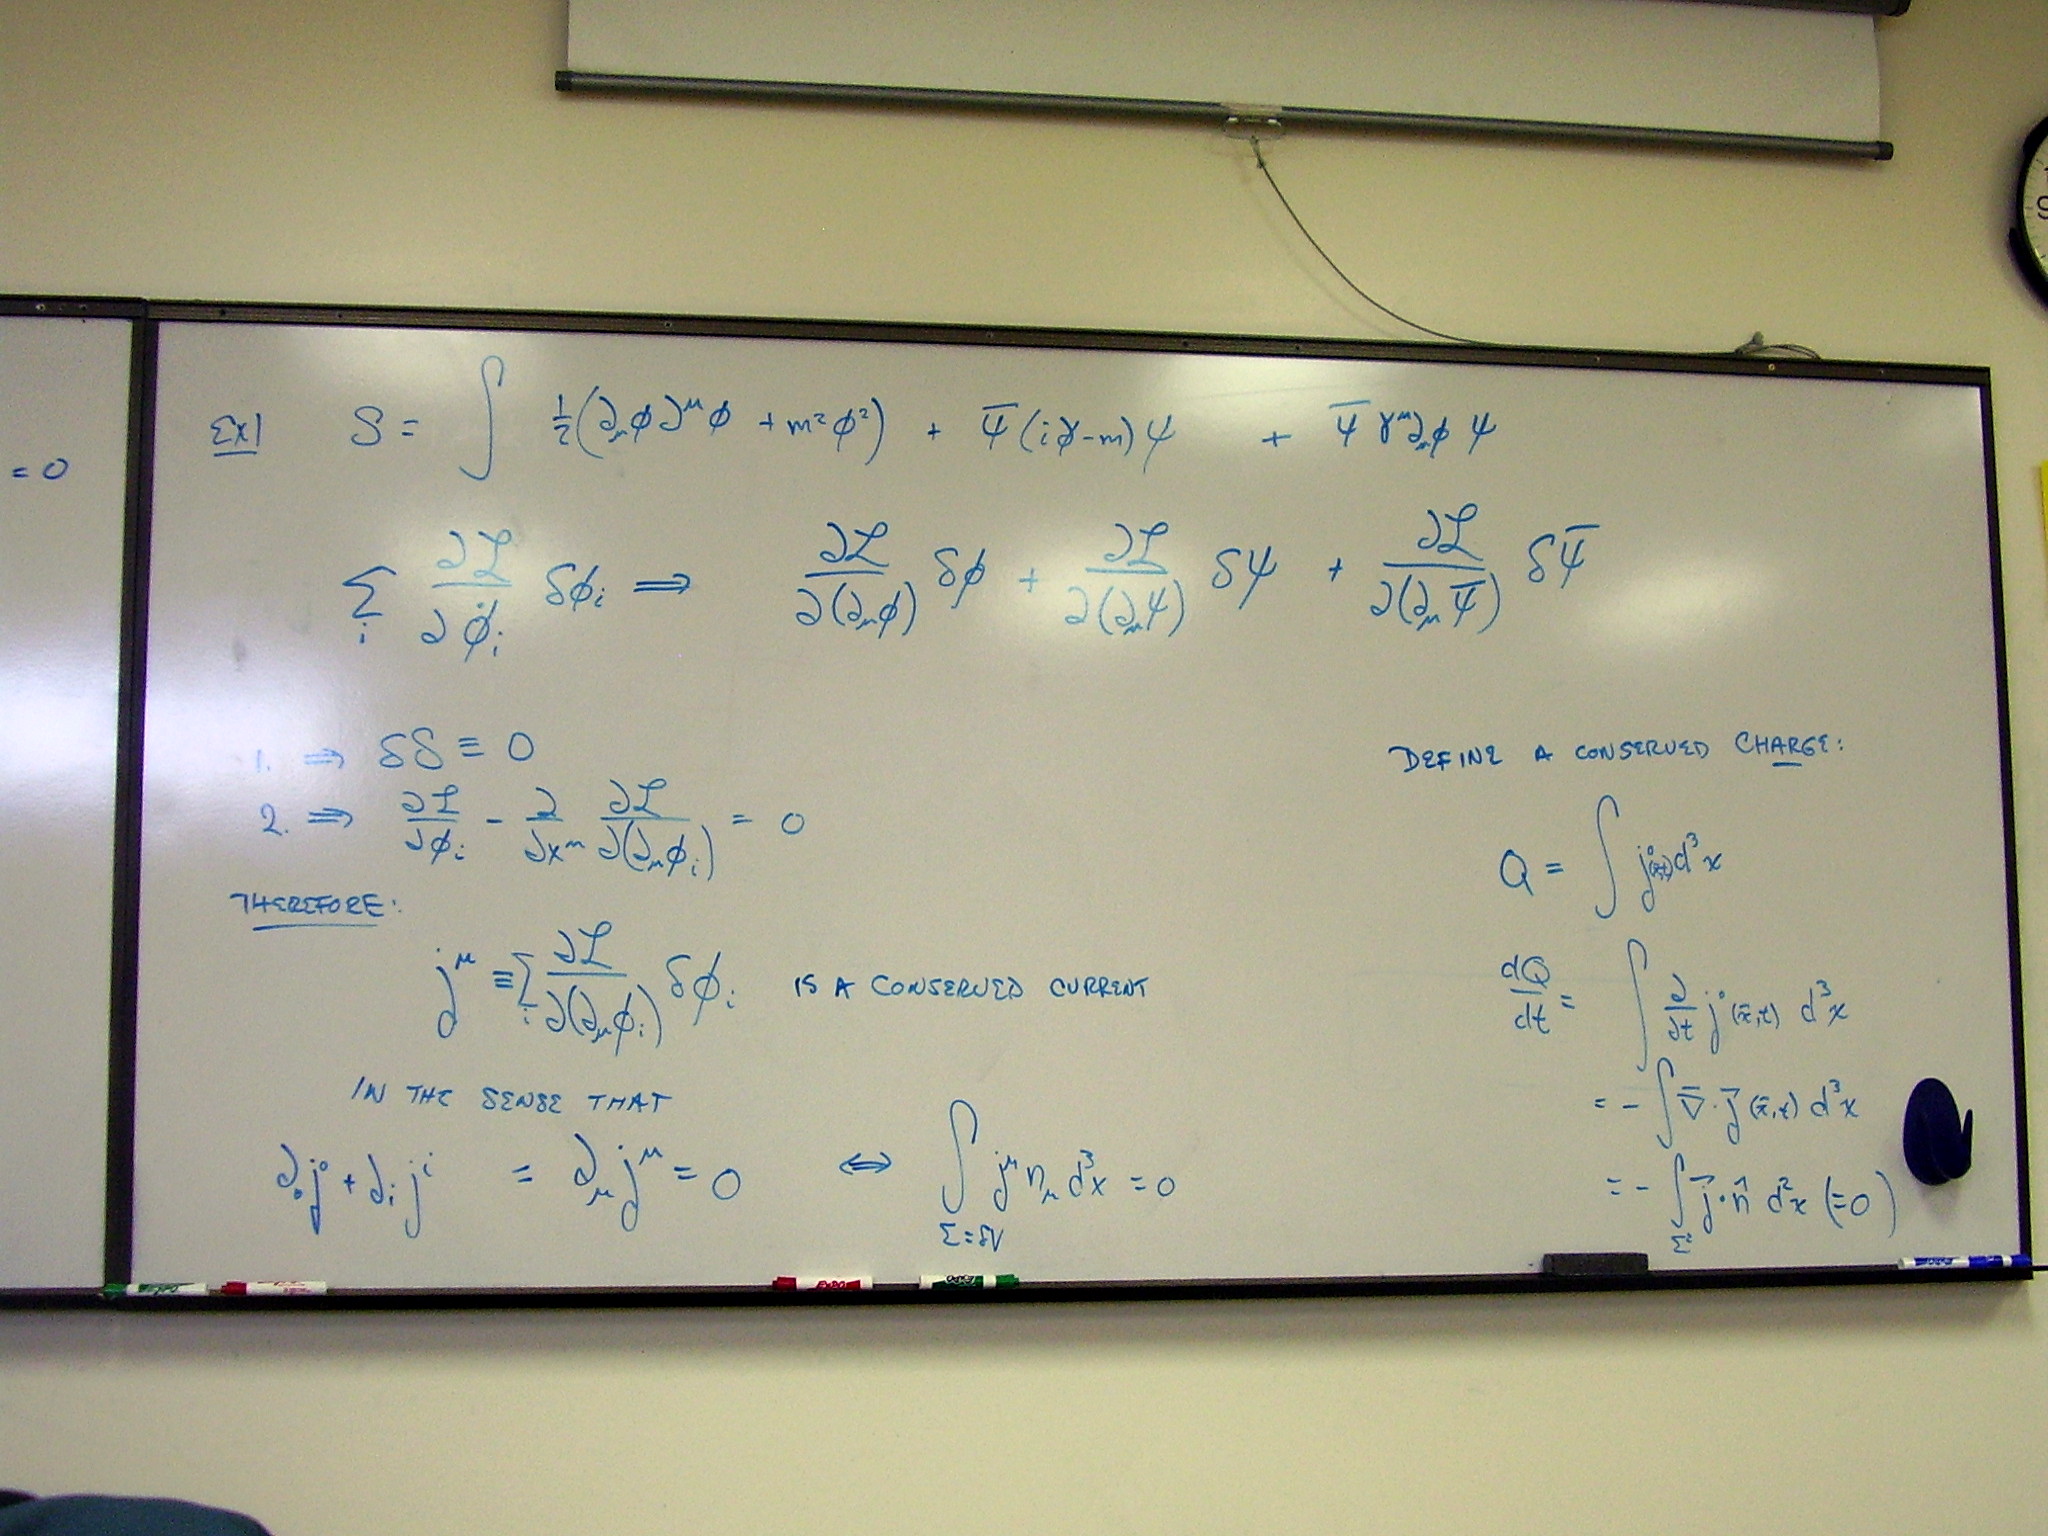 = 0
Ex1 S = ∫ ½(∂_μφ∂^μφ + m²φ²) + ψ̄(i∂̸-m)ψ + ψ̄γ^μ∂_μφψ
Σ_i ∂ℒ/∂φ̇_i δφ_i ⟹ ∂ℒ/∂(∂_μφ) δφ + ∂ℒ/∂(∂_μψ) δψ + ∂ℒ/∂(∂_μψ̄) δψ̄
1. ⟹ δS ≡ 0
2. ⟹ ∂ℒ/∂φ_i - ∂/∂x^μ ∂ℒ/∂(∂_μφ_i) = 0
THEREFORE:
j^μ ≡ Σ_i ∂ℒ/∂(∂_μφ_i) δφ_i IS A CONSERVED CURRENT
IN THE SENSE THAT
∂_0j^0 + ∂_ij^i = ∂_μj^μ = 0 ⟺ ∫_{Σ=δV} j^μn_μ d³x = 0
DEFINE A CONSERVED CHARGE:
Q = ∫ j^0 d³x
dQ/dt = ∫ ∂/∂t j^0(x̄,t) d³x
= - ∫ ∇̄·j⃗(x̄,t) d³x
= - ∫_{Σ²} j⃗·n̂ d²x (=0)
9